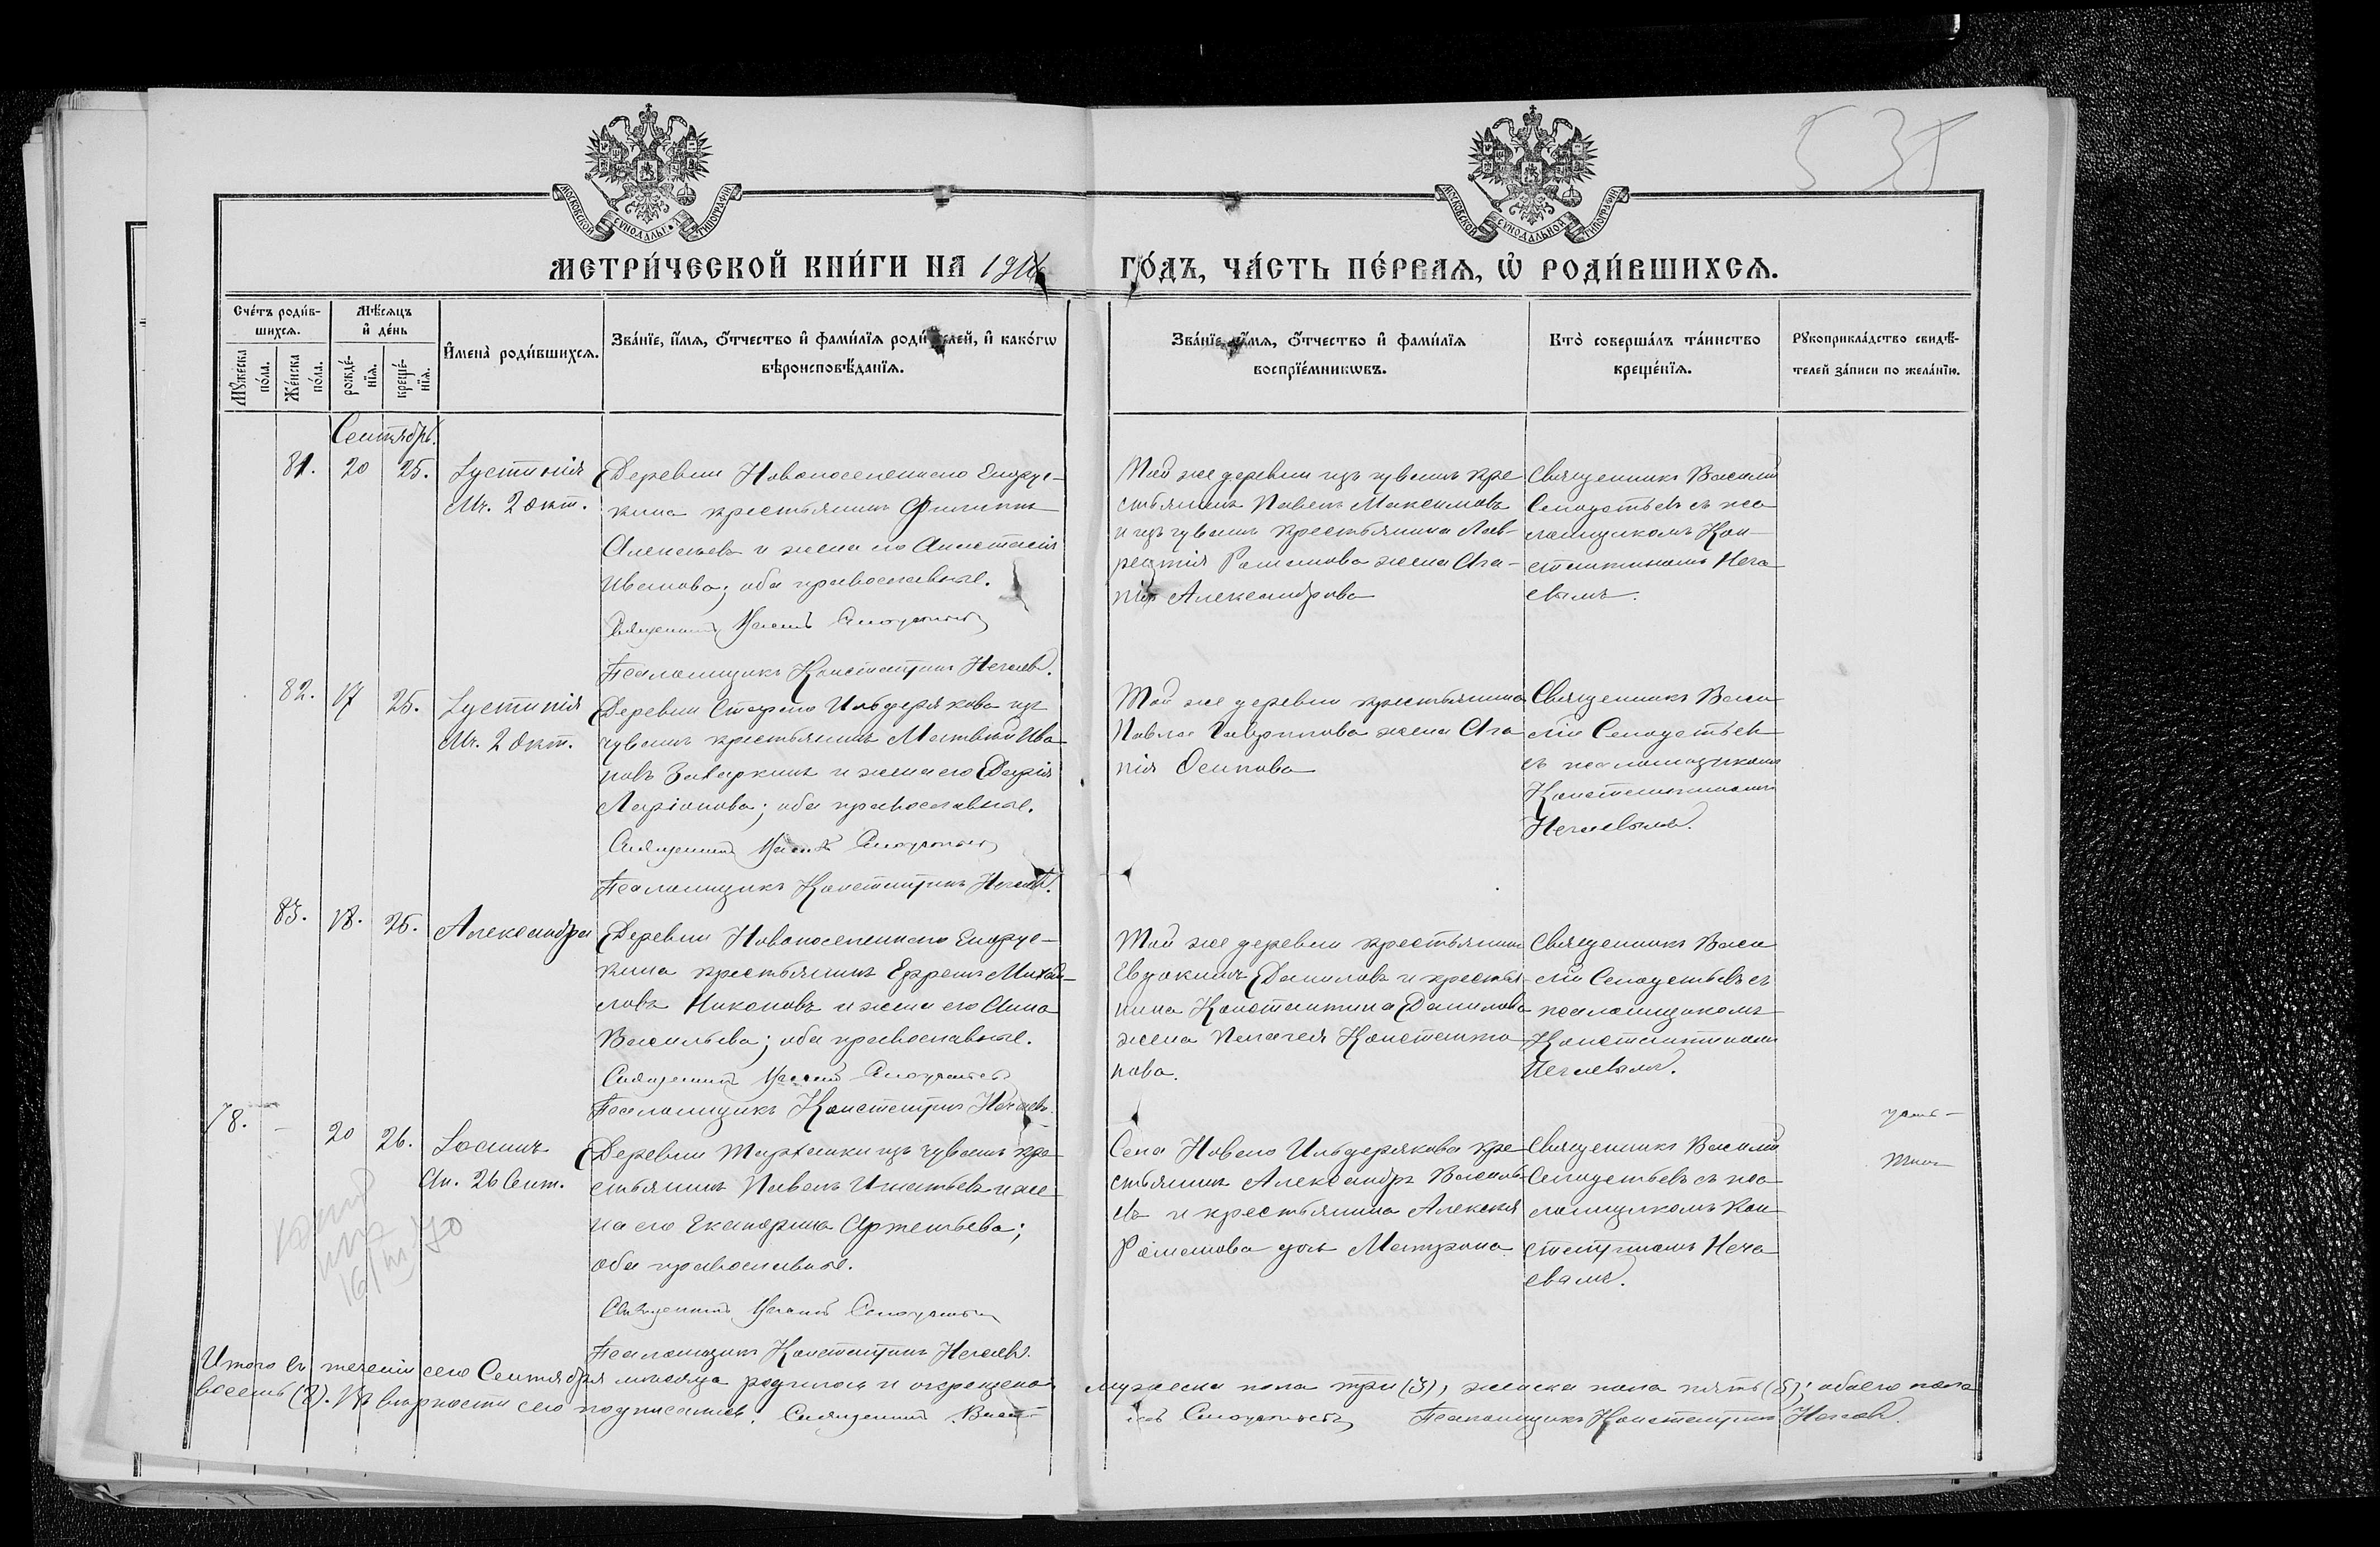 535
МОСКОВСКОЙ СУНОДАЛЬНОЙ ТИПОГРАФІИ
МОСКОВСКОЙ СУНОДАЛЬНОЙ ТИПОГРАФІИ
МЕТРИ́ЧЕСКОЙ КНИ́ГИ НА 191
ГО́ДЪ, ЧА́СТЬ ПЕ́РВАѦ, Ѡ҆ РОДИ́ВШИХСѦ.
Сче́тъ роди́в-
шихсѧ.
Мꙋ́жеска по́ла.
Же́нска по́ла.
Мѣ́сѧцъ
и҆ де́нь
рожде́-
нїѧ.
креще́-
нїѧ.
И҆мена̀ роди́вшихсѧ.
Зва́нїе, и҆́мѧ, ѻ҆́тчество и҆ фами́лїѧ роди́телей, и҆ како́гѡ
вѣроисповѣ́данїѧ.
Зва́нїе, и҆́мѧ, ѻ҆́тчество и҆ фами́лїѧ
воспрїе́мникѡвъ.
Кто̀ соверша́лъ та́инство
креще́нїѧ.
Рꙋкоприкла́дство свидѣ́-
телей за́писи по жела́нїю.
Сентябрь.
81. 20 25.
Іустинія
Мч. 2 окт.
Деревни Новопоселеннаго
кина крестьянинъ Филиппъ
Алексѣевъ и жена его Анастасія
Иванова; оба православные.
Священникъ Василій
Псаломщикъ Константинъ Нечаевъ.
Той же деревни изъ чувашъ кре
стьянинъ Павелъ Максимовъ
и изъ чувашъ крестьянина Лав-
рентія Романова жена Ага-
пія Александрова
Священникъ Василій
съ пса
ломщикомъ Кон-
стантиномъ Неча
евымъ.
82. 17 25.
Іустинія
Мч. 2 окт.
Деревни Стараго Ильдерякова изъ
чувашъ крестьянинъ Матвѣй Ива
новъ и жена его Дарія
Ларіонова; оба православные.
Священникъ Василій
Псаломщикъ Константинъ Нечаевъ.
Той же деревни крестьянина
Павла жена Ага
пія Осипова
Священникъ Васи
лій
съ псаломщикомъ
Константиномъ
Нечаевымъ.
83. 18. 25.
Александра
Деревни Новопоселеннаго
кина крестьянинъ Ефремъ Михай-
ловъ Никоновъ и жена его Анна
Васильева; оба православные.
Священникъ Василій
Псаломщикъ Константинъ Нечаевъ.
Той же деревни крестьянинъ
Евдокимъ Даниловъ и крестья
нина Константина Данилова
жена Пелагея Константи
нова.
Священникъ Васи
лій съ
псаломщикомъ
Константиномъ
Нечаевымъ.
78. - 20 26.
Іоаннъ
Ап. 26 Сент.
Деревни изъ чувашъ кре
стьянинъ Павелъ Игнатьевъ и же
на его Екатерина Артемьева;
оба православные.
Священникъ Василій
Псаломщикъ Константинъ Нечаевъ.
Села Новаго Ильдерякова кре
стьянинъ Александръ Василь
евъ и крестьянина Алексѣя
Романова дочь Матрона.
Священникъ Василій
съ пса
ломщикомъ Кон
стантиномъ Неча
евымъ.
16/III 70
Итого въ теченіи сего Сентября мѣсяца родилось и окрещено мужеска пола три (3), женска пола пять (5); обоего пола
восемь (8). Въ вѣрности сего подписались: Священникъ Василій Псаломщикъ Константинъ Нечаевъ.